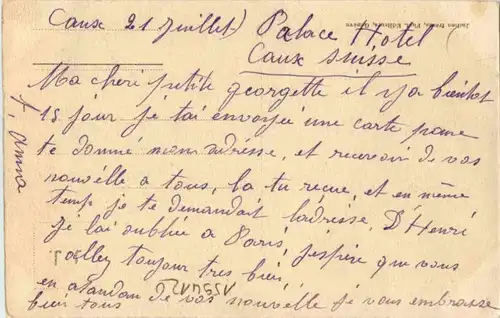 Caux 21 Juillet) Palace Hotel
Caux Suisse
Jullien frères, Phot. Editeurs, Genève
Ma cheri petite georgette il y a bientot
15 jour je t'ai envoyée une carte pour
te donné mon adrèsse, et recevoir de vos
nouvélle a tous, la tu reçue, et en même
temp je te demandait ladrèsse, D'Henri
je lai oublie a Paris, j'espère que vous
allez toujour tres bien,
en atandan de vos nouvelle je vous embrasse
bien tous
f, Anna